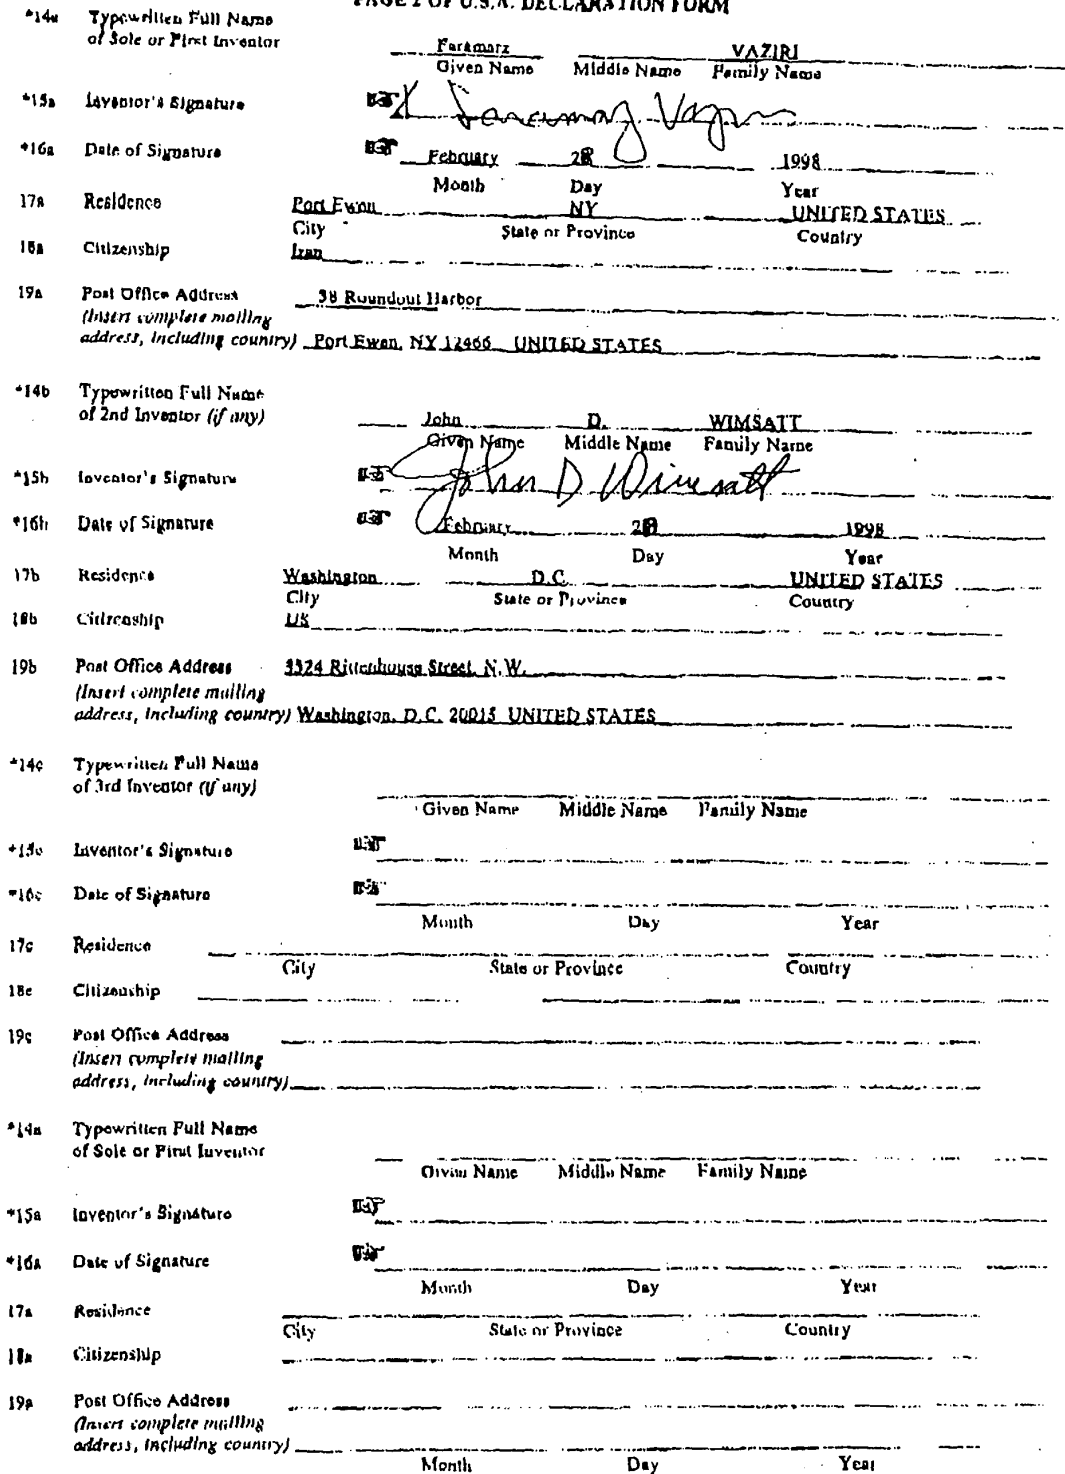 PAGE 2 OF U.S.A. DECLARATION FORM
*14a Typewritten Full Name
of Sole or First Inventor
Faramarz VAZIRI
Given Name Middle Name Family Name
*15a Inventor's Signature X Faramarz Vaziri
*16a Date of Signature February 28 1998
Month Day Year
17a Residence Port Ewen NY UNITED STATES
City State or Province Country
18a Citizenship Iran
19a Post Office Address 38 Roundout Harbor
(Insert complete mailing
address, including country) Port Ewen, NY 12466 UNITED STATES
*14b Typewritten Full Name
of 2nd Inventor (if any)
John D. WIMSATT
Given Name Middle Name Family Name
*15b Inventor's Signature John D Wimsatt
*16b Date of Signature February 1998
Month Day Year
17b Residence Washington D.C. UNITED STATES
City State or Province Country
18b Citizenship US
19b Post Office Address 3324 Rittenhouse Street, N.W.
(Insert complete mailing
address, including country) Washington, D.C. 20015 UNITED STATES
*14c Typewritten Full Name
of 3rd Inventor (if any)
Given Name Middle Name Family Name
*15c Inventor's Signature
*16c Date of Signature
Month Day Year
17c Residence
City State or Province Country
18c Citizenship
19c Post Office Address
(Insert complete mailing
address, including country)
*14a Typewritten Full Name
of Sole or First Inventor
Given Name Middle Name Family Name
*15a Inventor's Signature
*16a Date of Signature
Month Day Year
17a Residence
City State or Province Country
18a Citizenship
19a Post Office Address
(Insert complete mailing
address, including country)
Month Day Year